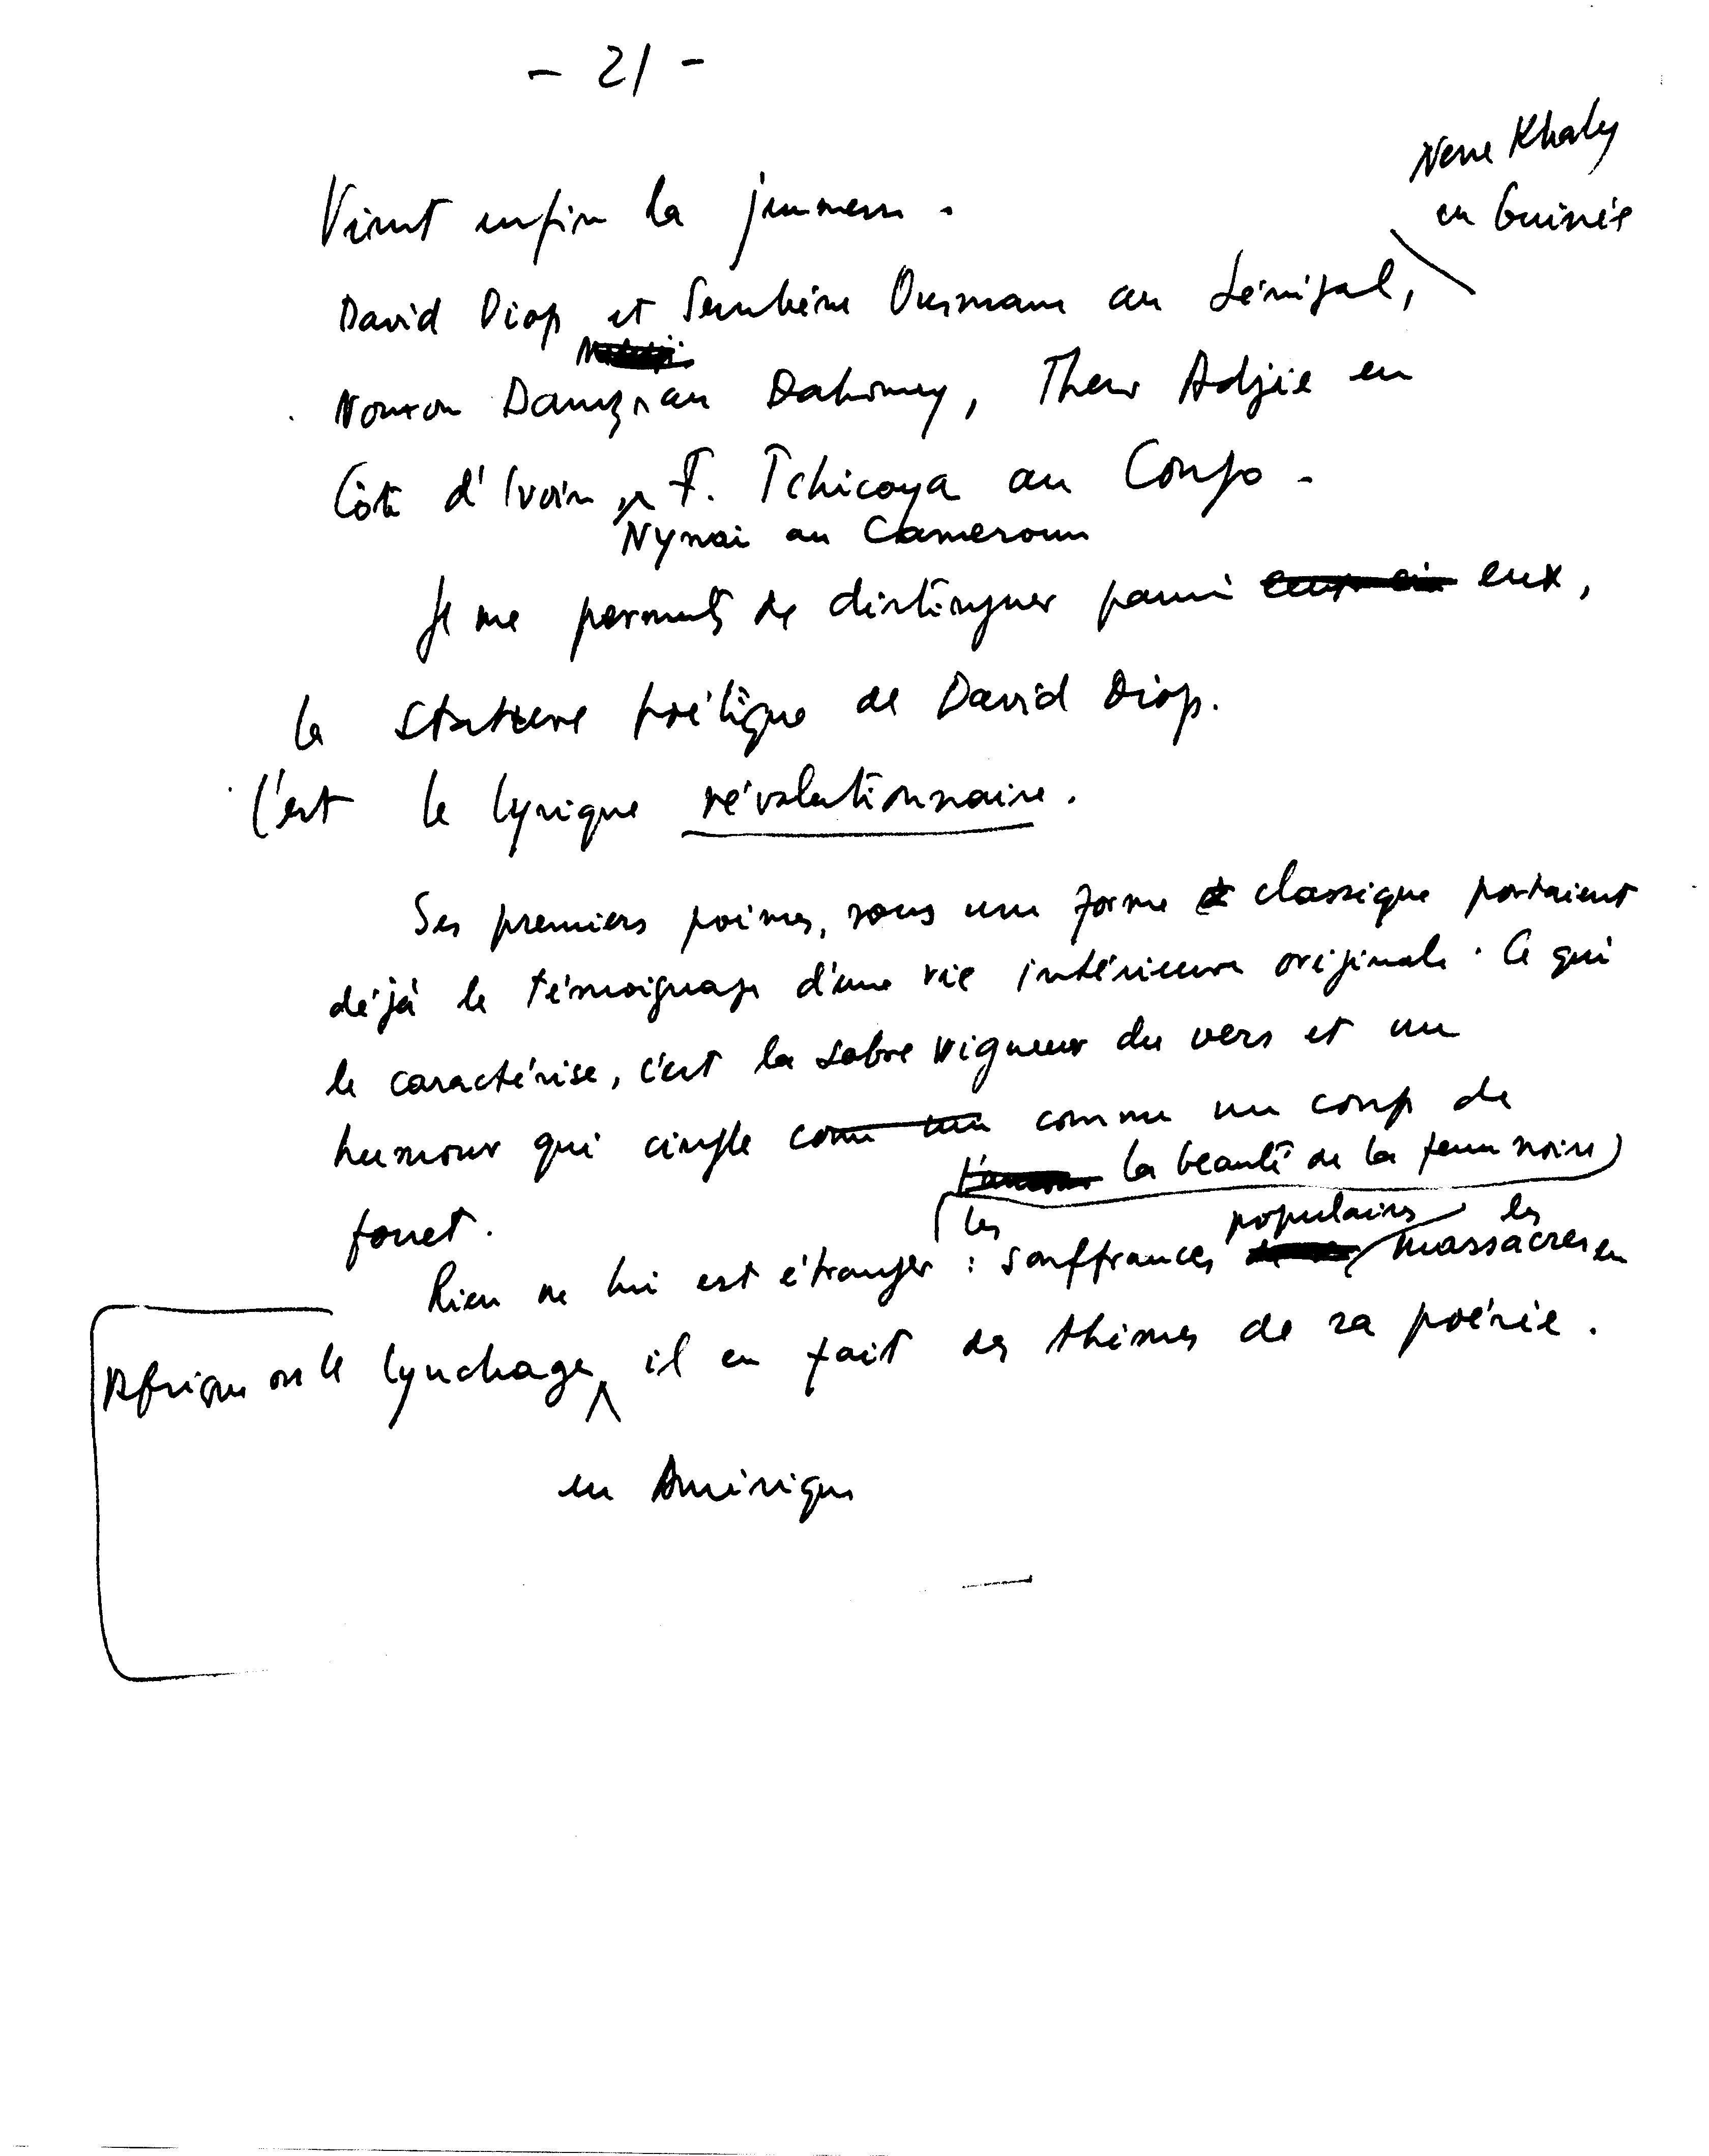 - 21 -
Nene Khaly
en Guinée
Vient enfin la jeunesse.
David Diop et Sembène Ousmane au Sénégal,
au Dahomey, Adjié en
Côte d'Ivoire, F. Tchicaya au Congo.
au Cameroun
Je me permets de distinguer parmi eux,
la stature poétique de David Diop.
C'est le lyrique révolutionnaire.
Ses premiers poèmes, sous une forme classique portaient
déjà le témoignage d'une vie intérieure originale. Ce qui
le caractérise, c'est la sobre vigueur du vers et un
humour qui cingle comme un coup de
la beauté de la femme noire
fouet.
les populaires les
Rien ne lui est étranger : souffrances massacres en
Afrique ou le lynchage il en fait des thèmes de sa poésie.
en Amérique